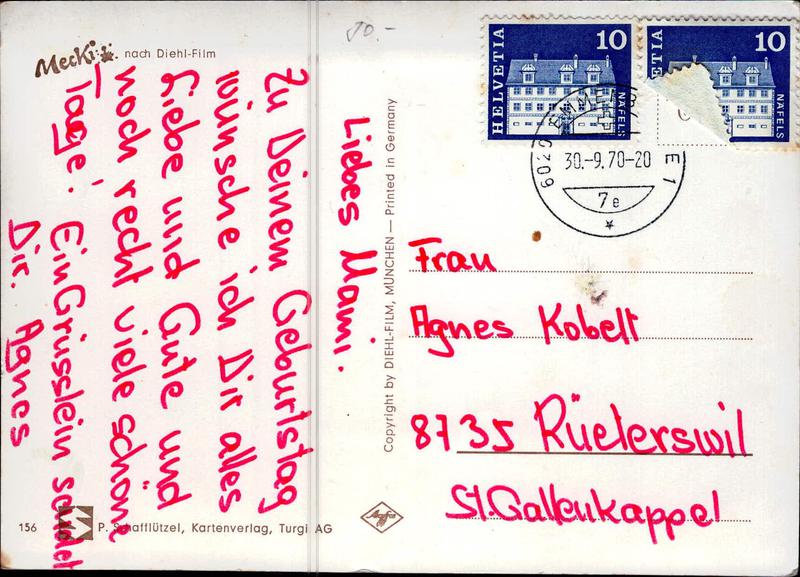 Mecki
nach Diehl-Film
Liebes Mami.
Zu Deinem Geburtstag
wünsche ich Dir alles
Liebe und Gute und
noch recht viele schöne
Tage! Ein Grüsslein sendet
Dir. Agnes
Copyright by DIEHL-FILM, MÜNCHEN — Printed in Germany
80.-
HELVETIA 10 NÄFELS
HELVETIA 10 NÄFELS
6020 EMME
30.-9.70-20
E 1
7e
Frau
Agnes Kobelt
8735 Rüeterswil
St.Gallenkappel
Agfa
156
P. Schafflützel, Kartenverlag, Turgi AG